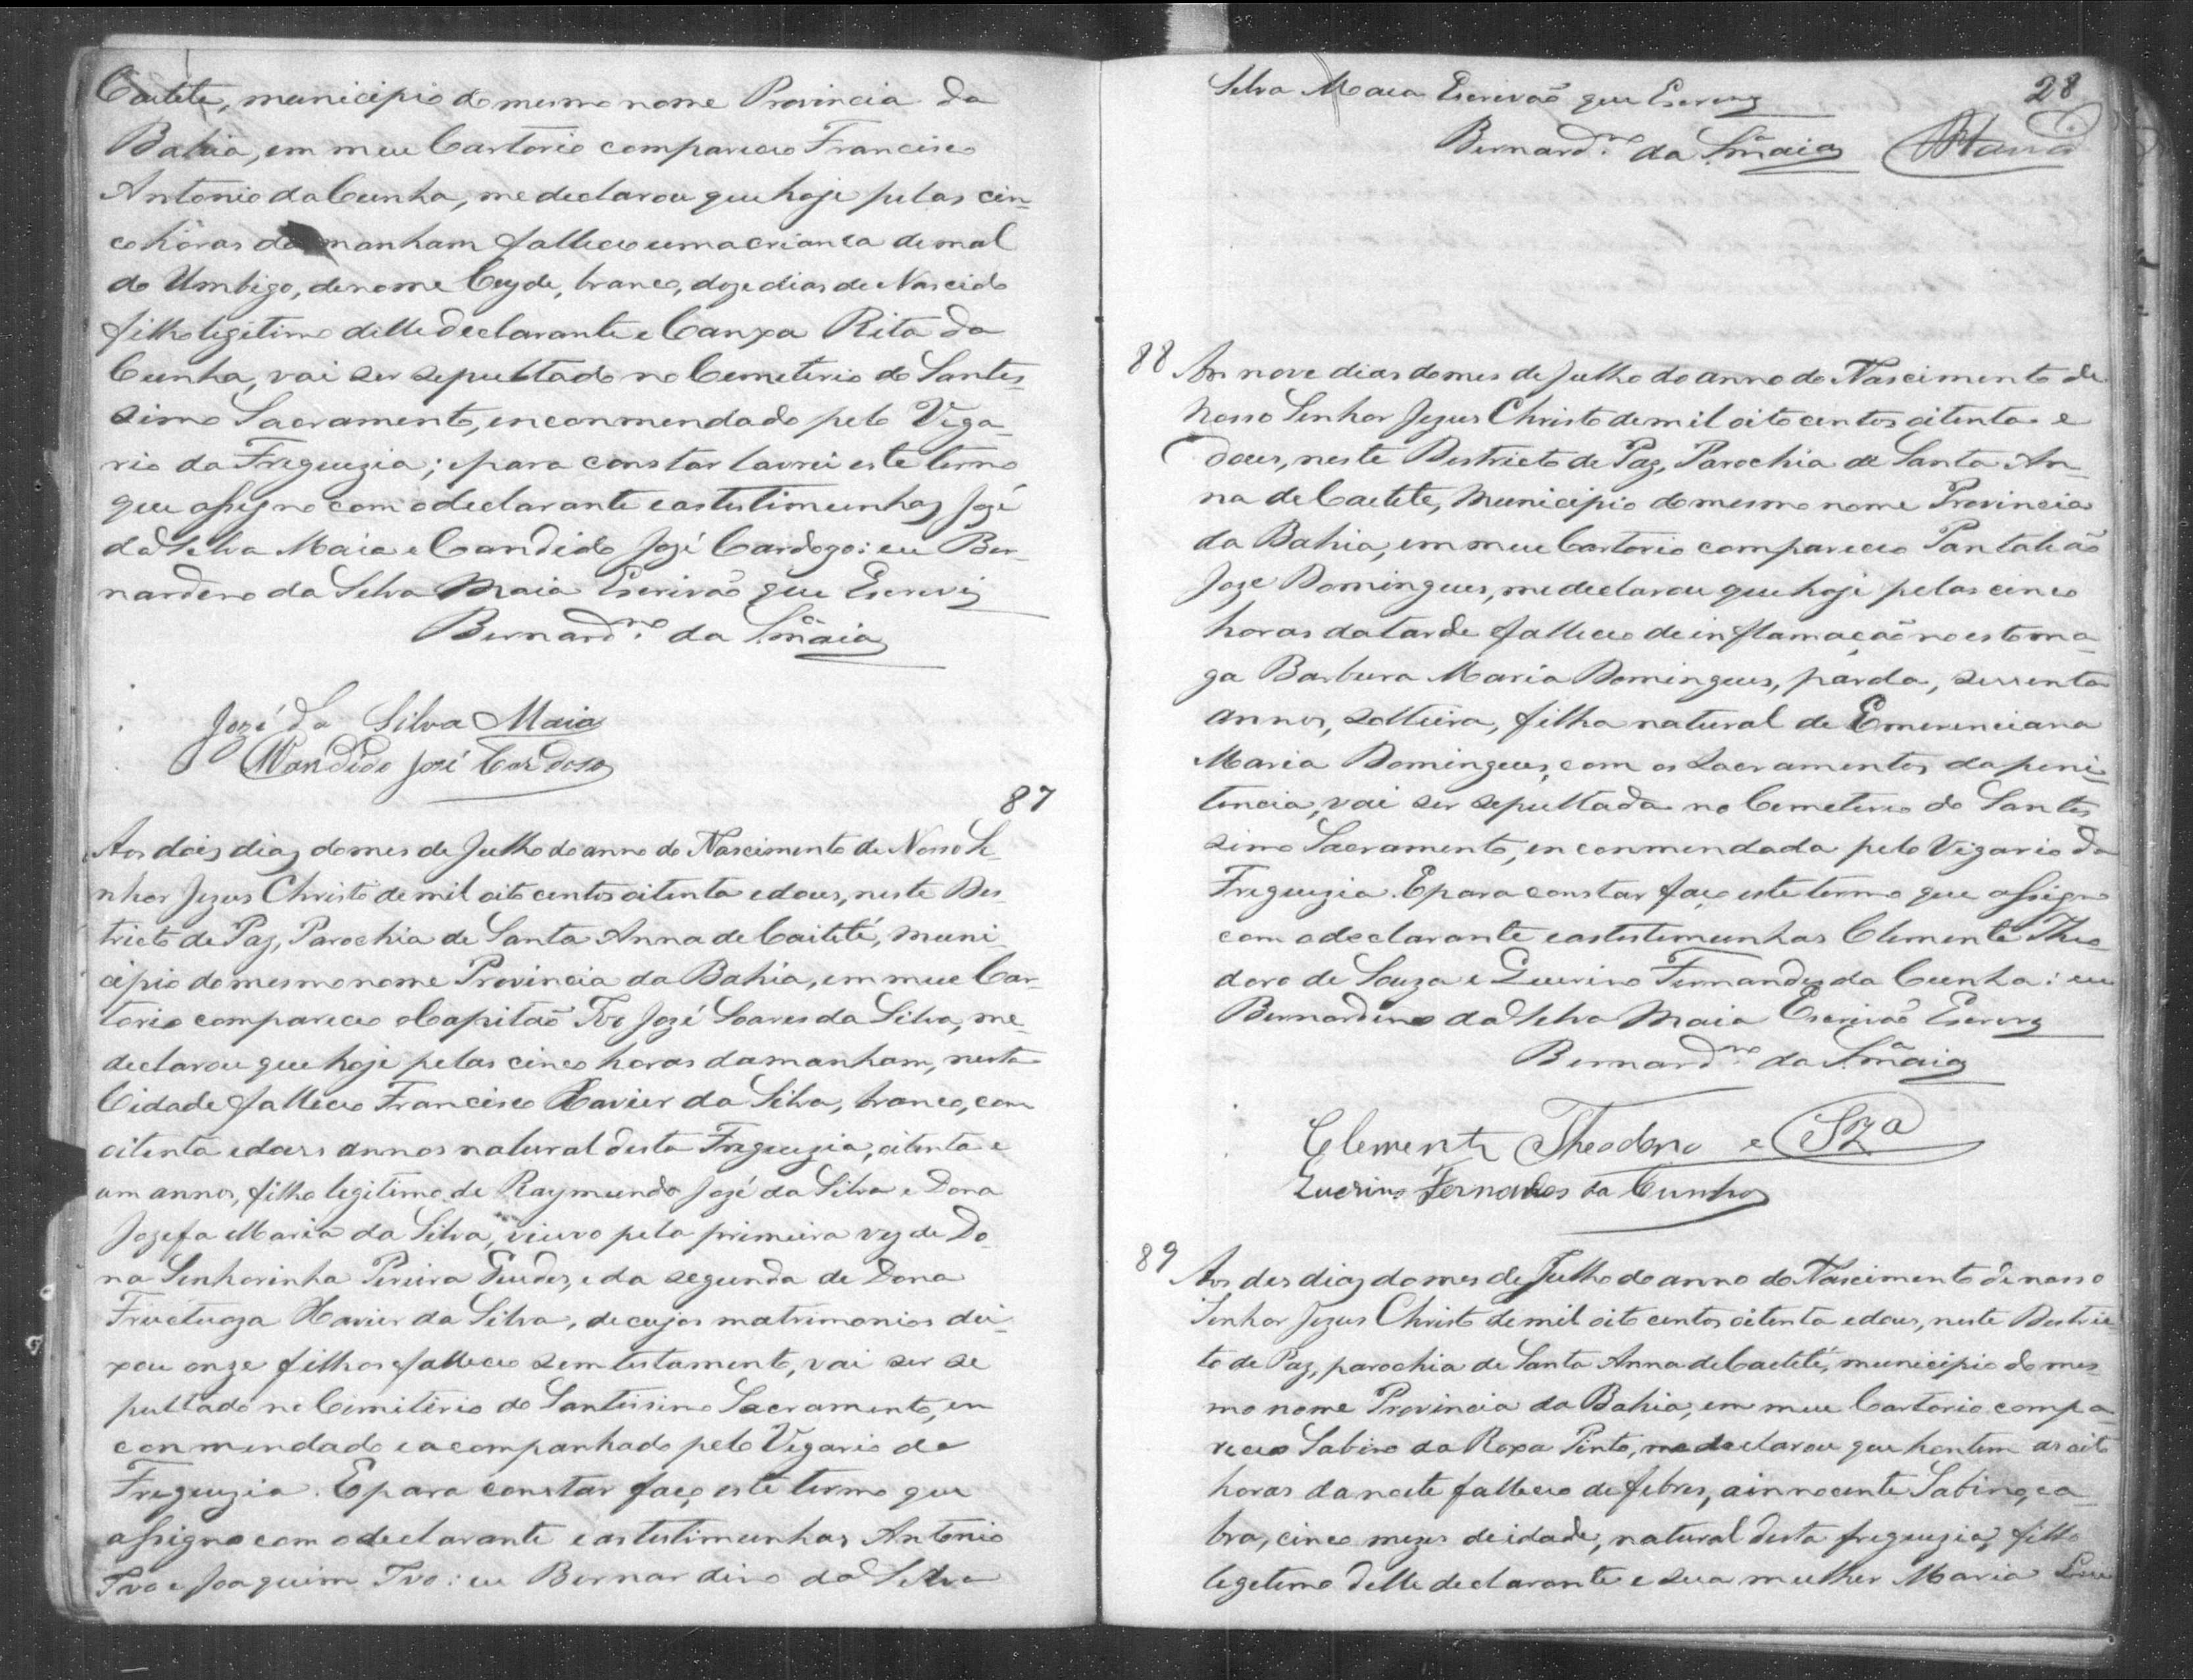 Caitete, municipio do mesmo nome Provincia da
Bahia, em meu Cartorio compareceo Francisco
Antonio da Cunha, me declarou que hoje pelas cin-
co hòras da manham falleceo uma crianca de mal
do Umbigo, de nome Cyde, branco, doze dias de Nascido
filho legitimo delle declarante e Canxa Rita da
Cunha, vai ser sepultado no Cemeterio do Santis-
simo Sacramento, enconmendado pelo Viga-
rio da Freguezia; e para constar lavrei este termo
que assigno com o declarante e as testimunhas José
da Selva Maia e Candido José Cardozo: eu Ber-
nardeno da Selva Maia Escrivaõ que Escrevi
Bernard.no da S.a Maia
Jozé da Silva Maia
Candido José Cardoso
87
Aos dois dias do mes de Julho do anno do Nascimento de Nosso Se-
nhor Jezus Christo de mil oito centos oitenta e dous, neste Des-
tricto de Paz, Parochia de Santa Anna de Caiteté, Muni-
cipio do mesmo nome Provincia da Bahia, em meu Car-
torio compareceo o Capitaõ Ivo Jozé Soares da Silva, me
declarou que hoje pelas cinco horas da manham, nesta
Cidade falleceo Francisco Xavier da Silva, branco, com
oitenta e dous annos natural desta Freguezia, oitenta e
um annos, filho legitimo de Raymundo Jozé da Silva e Dona
Jozefa Maria da Silva, viuvo pela primeira vez de Do-
na Senhorinha Pereira Guedes, e da segunda de Dona
Fructuoza Xavier da Silva, de cujos matrimonios dei-
xou onze filhos e falleceo sem testamento, vai ser se
pultado no Cimitério do Santissimo Sacramento, en
conmendado e acompanhado pelo Vigario da
Freguezia. E para constar faço este termo que
assigno com o declarante e as testimunhas Antonio
Ivo e Joaquim Ivo: eu Bernardino da Selva
28
Selva Maia Escrivaõ que Escrevy
Bernard.no da S.a Maia
88
Aos nove dias do mes de Julho do anno do Nascimento de
Nosso Senhor Jezus Christo de mil oito centos oitenta e
dous, neste Destricto de Paz, Parochia de Santa An-
na de Caetete, Municipio do mesmo nome Provincia
da Bahia, em meu Cartorio compareceo Pantaleaõ
Joze Domingues, me declarou que hoje pelas cinco
horas da tarde falleceo de inflamaçaõ no estoma-
go Barbara Maria Domingues, parda, sessenta
annos, solteira, filha natural de Emerenciana
Maria Domingues, com os Sacramentos da peni-
tencia, vai ser sepultada no Cemeterio do Santis
simo Sacramento, enconmendada pelo Vigario da
Freguezia. E para constar faço este termo que assigno
com o declarante e as testimunhas Clemente Theo
doro de Souza e Querino Fernandes da Cunha: eu
Bernardeno da Selva Maia Escrivaõ Escrevy
Bernard.no da S.a Maia
Clemente Theodoro e Sza
Querino Fernandes da Cunha
89
Aos des dias do mes de Julho do anno do Nascimento de nosso
Senhor Jezus Christo de mil oito centos oitenta e dous, neste Destric-
to de Paz, parochia de Santa Anna de Caeteté, municipio do mes-
mo nome Provincia da Bahia, em meu Cartorio compa-
receo Sabino da Roxa Pinto, me declarou que hontem as oito
horas da noite falleceo de febres, a innocente Sabino, ca-
bra, cinco mezes de idade, natural desta freguezia, filho
legetimo delle declarante e sua mulher Maria